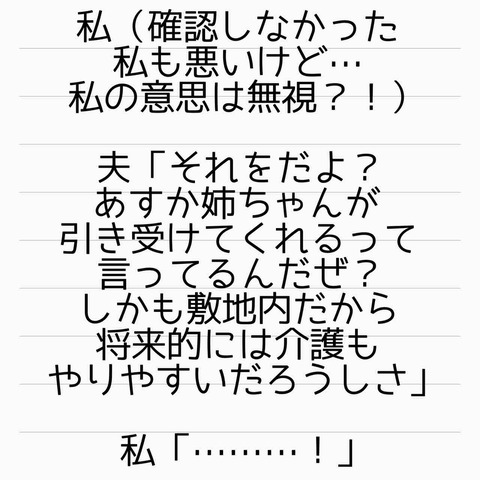 私（確認しなかった
私も悪いけど…
私の意思は無視？！）
夫「それをだよ？
あすか姉ちゃんが
引き受けてくれるって
言ってるんだぜ？
しかも敷地内だから
将来的には介護も
やりやすいだろうしさ」
私「………！」